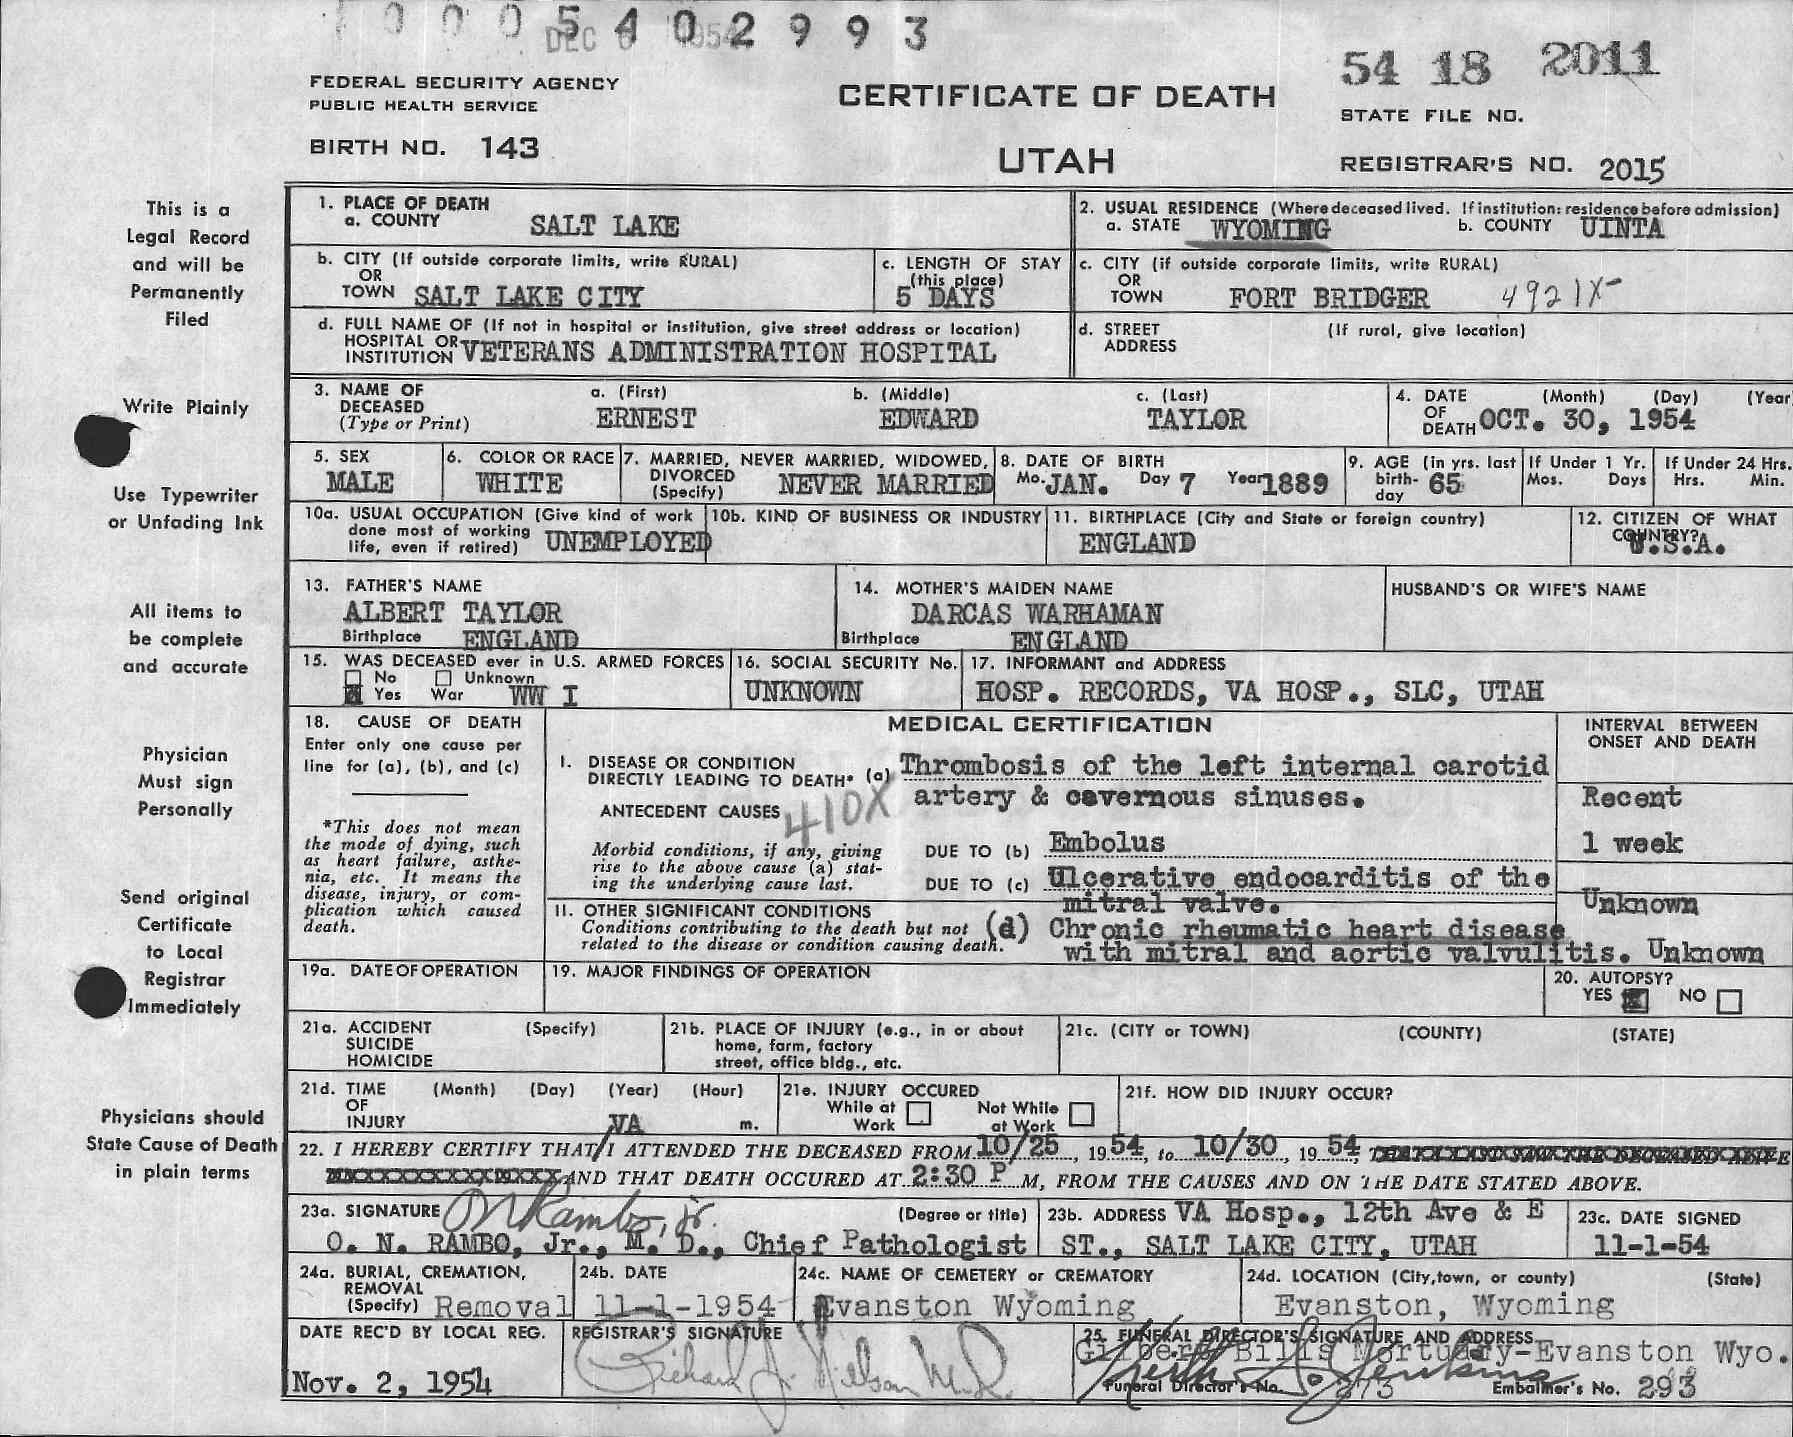 1 0 0 0 5 4 0 2 9 9 3
DEC 6 1954
54 18 2011
FEDERAL SECURITY AGENCY
PUBLIC HEALTH SERVICE
CERTIFICATE OF DEATH
STATE FILE NO.
BIRTH NO. 143
UTAH
REGISTRAR'S NO. 2015
This is a
Legal Record
and will be
Permanently
Filed
Write Plainly
Use Typewriter
or Unfading Ink
All items to
be complete
and accurate
Physician
Must sign
Personally
Send original
Certificate
to Local
Registrar
Immediately
Physicians should
State Cause of Death
in plain terms
1. PLACE OF DEATH
a. COUNTY SALT LAKE
2. USUAL RESIDENCE (Where deceased lived. If institution: residence before admission)
a. STATE WYOMING b. COUNTY UINTA
b. CITY (If outside corporate limits, write RURAL)
OR
TOWN SALT LAKE CITY
c. LENGTH OF STAY
(this place)
5 DAYS
c. CITY (if outside corporate limits, write RURAL)
OR
TOWN FORT BRIDGER 4921X-
d. FULL NAME OF (If not in hospital or institution, give street address or location)
HOSPITAL OR
INSTITUTION VETERANS ADMINISTRATION HOSPITAL
d. STREET (If rural, give location)
ADDRESS
3. NAME OF a. (First) b. (Middle) c. (Last)
DECEASED
(Type or Print) ERNEST EDWARD TAYLOR
4. DATE (Month) (Day) (Year
OF
DEATH OCT. 30, 1954
5. SEX
MALE
6. COLOR OR RACE
WHITE
7. MARRIED, NEVER MARRIED, WIDOWED,
DIVORCED
(Specify) NEVER MARRIED
8. DATE OF BIRTH
Mo. JAN. Day 7 Year 1889
9. AGE (in yrs. last
birth-
day 65
If Under 1 Yr.
Mos. Days
If Under 24 Hrs.
Hrs. Min.
10a. USUAL OCCUPATION (Give kind of work
done most of working
life, even if retired) UNEMPLOYED
10b. KIND OF BUSINESS OR INDUSTRY
11. BIRTHPLACE (City and State or foreign country)
ENGLAND
12. CITIZEN OF WHAT
COUNTRY?
U.S.A.
13. FATHER'S NAME
ALBERT TAYLOR
Birthplace ENGLAND
14. MOTHER'S MAIDEN NAME
DARCAS WARHAMAN
Birthplace ENGLAND
HUSBAND'S OR WIFE'S NAME
15. WAS DECEASED ever in U.S. ARMED FORCES
No Unknown
Yes War WW I
16. SOCIAL SECURITY No.
UNKNOWN
17. INFORMANT and ADDRESS
HOSP. RECORDS, VA HOSP., SLC, UTAH
18. CAUSE OF DEATH
Enter only one cause per
line for (a), (b), and (c)
*This does not mean
the mode of dying, such
as heart failure, asthe-
nia, etc. It means the
disease, injury, or com-
plication which caused
death.
MEDICAL CERTIFICATION
INTERVAL BETWEEN
ONSET AND DEATH
I. DISEASE OR CONDITION
DIRECTLY LEADING TO DEATH* (a) Thrombosis of the left internal carotid
artery & cavernous sinuses. Recent
ANTECEDENT CAUSES 410X
Morbid conditions, if any, giving
rise to the above cause (a) stat-
ing the underlying cause last.
DUE TO (b) Embolus 1 week
DUE TO (c) Ulcerative endocarditis of the
mitral valve. Unknown
II. OTHER SIGNIFICANT CONDITIONS
Conditions contributing to the death but not
related to the disease or condition causing death.
(d) Chronic rheumatic heart disease
with mitral and aortic valvulitis. Unknown
19a. DATE OF OPERATION
19. MAJOR FINDINGS OF OPERATION
20. AUTOPSY?
YES NO
21a. ACCIDENT (Specify)
SUICIDE
HOMICIDE
21b. PLACE OF INJURY (e.g., in or about
home, farm, factory
street, office bldg., etc.
21c. (CITY or TOWN) (COUNTY) (STATE)
21d. TIME (Month) (Day) (Year) (Hour)
OF
INJURY m.
21e. INJURY OCCURED
While at Not While
Work at Work
21f. HOW DID INJURY OCCUR?
VA
22. I HEREBY CERTIFY THAT/I ATTENDED THE DECEASED FROM 10/25, 1954, to 10/30, 1954,
AND THAT DEATH OCCURED AT 2:30 P M, FROM THE CAUSES AND ON THE DATE STATED ABOVE.
23a. SIGNATURE ON Rambo, jr. (Degree or title)
O. N. RAMBO, Jr., M. D., Chief Pathologist
23b. ADDRESS VA Hosp., 12th Ave & E
ST., SALT LAKE CITY, UTAH
23c. DATE SIGNED
11-1-54
24a. BURIAL, CREMATION,
REMOVAL
(Specify) Removal
24b. DATE
11-1-1954
24c. NAME OF CEMETERY or CREMATORY
Evanston Wyoming
24d. LOCATION (City, town, or county) (State)
Evanston, Wyoming
DATE REC'D BY LOCAL REG.
Nov. 2, 1954
REGISTRAR'S SIGNATURE
Richard J. Nelson M.D.
25. FUNERAL DIRECTOR'S SIGNATURE AND ADDRESS
Gilbert Bills Mortuary-Evanston Wyo.
Keith Jenkins
Funeral Director's No. 373 Embalmer's No. 293